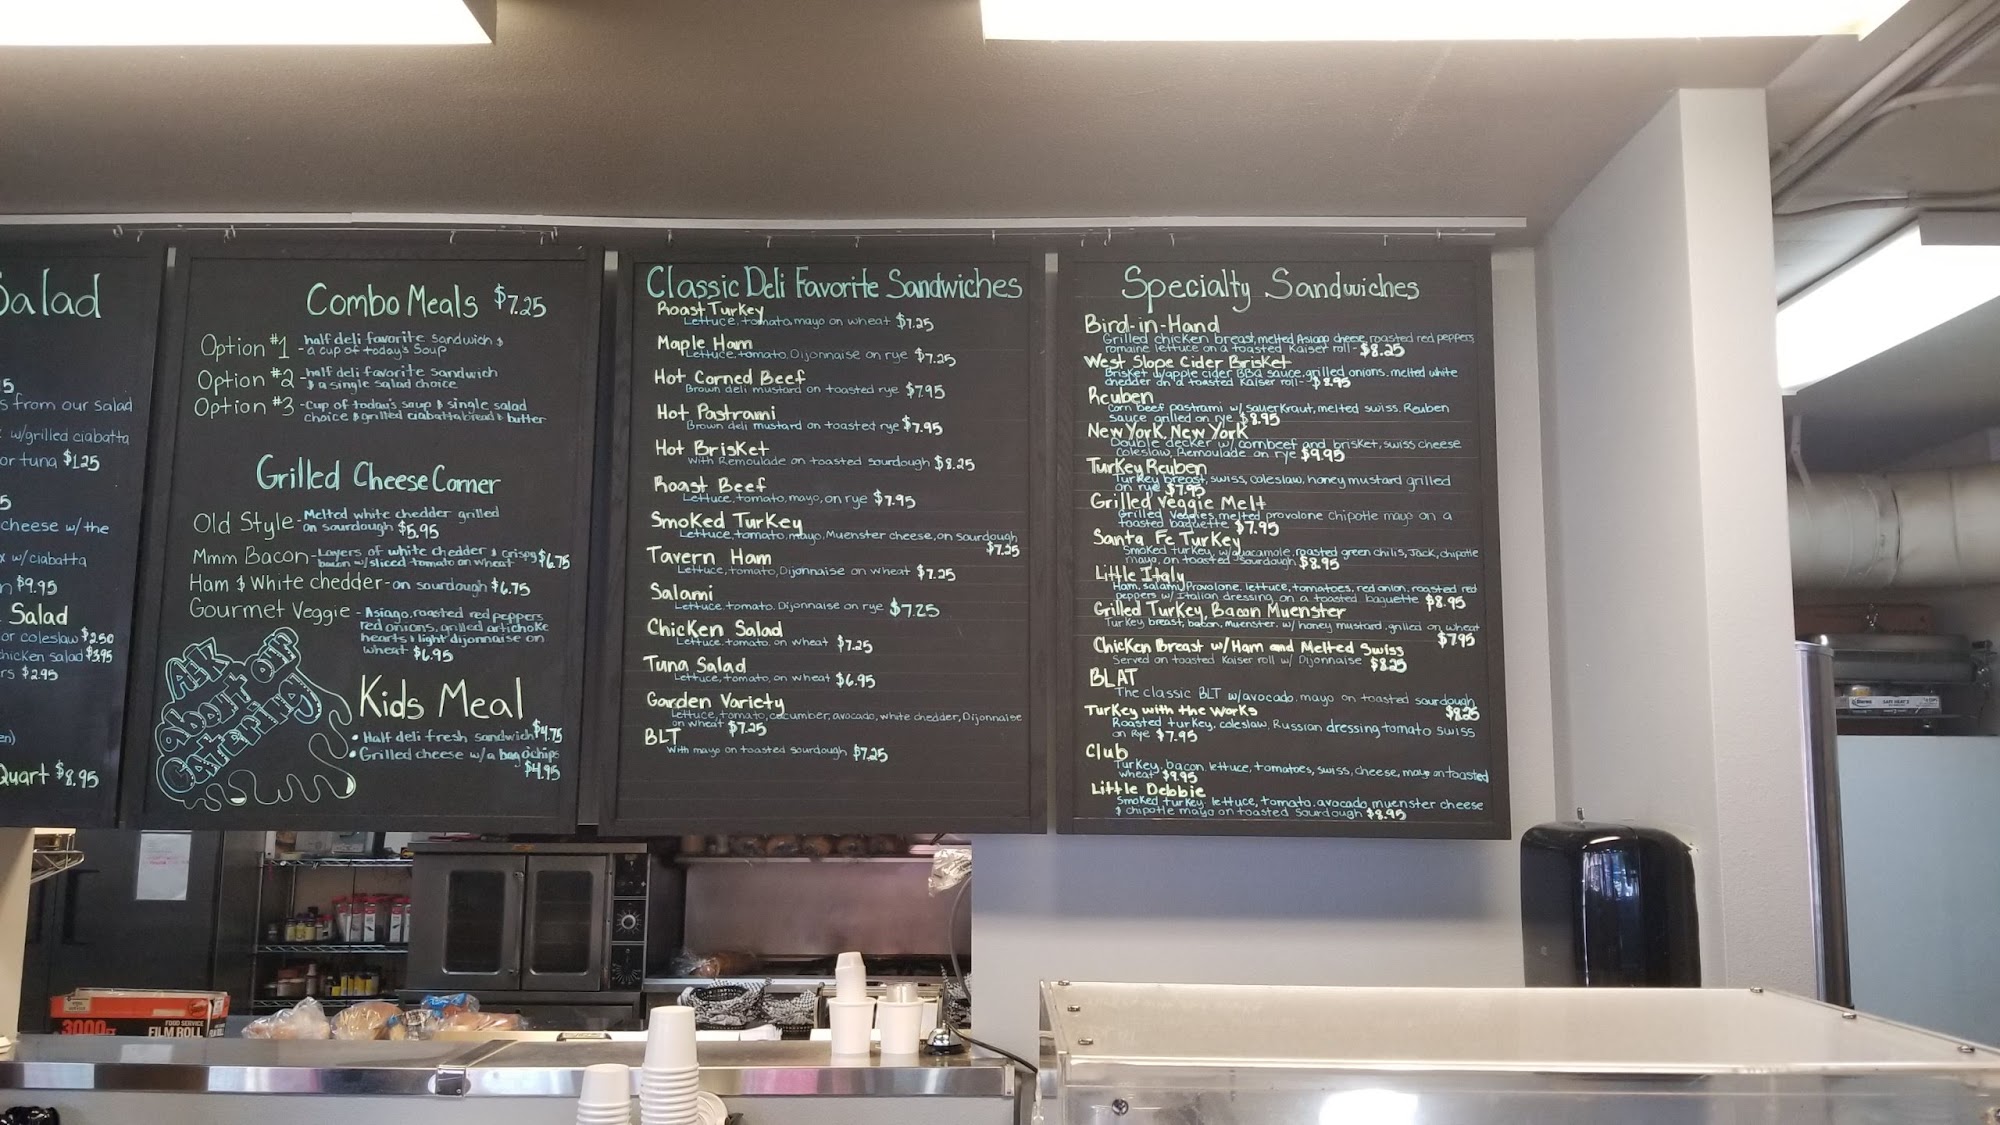 Salad
5
s from our salad
w/grilled ciabatta
or tuna $1.25
5
cheese w/the
x w/ciabatta
n $9.95
Salad
or coleslaw $2.50
hicken salad $3.95
rs $2.95
en)
Quart $8.95
Combo Meals $7.25
Option #1 - half deli favorite sandwich &
a cup of today's soup
Option #2 - half deli favorite sandwich
& a single salad choice
Option #3 - cup of today's soup & single salad
choice & grilled ciabatta bread & butter
Grilled Cheese Corner
Old Style - Melted white chedder grilled
on sourdough $5.95
Mmm Bacon - Layers of white chedder & crispy $6.75
bacon w/sliced tomato on wheat
Ham & White chedder - on sourdough $6.75
Gourmet Veggie - Asiago, roasted red peppers
red onions, grilled artichoke
hearts & light dijonnaise on
wheat $6.95
Ask
about our
Catering
Kids Meal
• Half deli fresh sandwich $4.75
• Grilled cheese w/a bag o' chips
$4.95
Classic Deli Favorite Sandwiches
Roast Turkey
Lettuce, tomato, mayo on wheat $7.25
Maple Ham
Lettuce, tomato, Dijonnaise on rye $7.25
Hot Corned Beef
Brown deli mustard on toasted rye $7.95
Hot Pastrami
Brown deli mustard on toasted rye $7.95
Hot Brisket
With Remoulade on toasted sourdough $8.25
Roast Beef
Lettuce, tomato, mayo, on rye $7.95
Smoked Turkey
Lettuce, tomato, mayo, Muenster cheese, on sourdough
$7.25
Tavern Ham
Lettuce, tomato, Dijonnaise on wheat $7.25
Salami
Lettuce, tomato, Dijonnaise on rye $7.25
Chicken Salad
Lettuce, tomato, on wheat $7.25
Tuna Salad
Lettuce, tomato, on wheat $6.95
Garden Variety
Lettuce, tomato, cucumber, avocado, white chedder, Dijonnaise
on wheat $7.25
BLT
With mayo on toasted sourdough $7.25
Specialty Sandwiches
Bird-in-Hand
Grilled chicken breast, melted Asiago cheese, roasted red peppers,
romaine lettuce on a toasted Kaiser roll - $8.25
West Slope Cider Brisket
Brisket w/apple cider BBQ sauce, grilled onions, melted white
chedder on a toasted Kaiser roll - $8.95
Reuben
Corn beef pastrami w/ sauerkraut, melted swiss, Reuben
sauce grilled on rye $8.95
New York, New York
Double decker w/ cornbeef and brisket, swiss cheese
coleslaw, Remoulade on rye $9.95
Turkey Reuben
Turkey breast, swiss, coleslaw, honey mustard grilled
on rye $7.95
Grilled Veggie Melt
Grilled Veggies, melted provolone chipotle mayo on a
toasted baguette $7.95
Santa Fe Turkey
Smoked turkey, w/guacamole, roasted green chilis, Jack, chipotle
mayo, on toasted sourdough $8.95
Little Italy
Ham, salami, Provolone, lettuce, tomatoes, red onion, roasted red
peppers w/ Italian dressing on a toasted baguette $8.95
Grilled Turkey, Bacon Muenster
Turkey breast, bacon, muenster, w/ honey mustard, grilled on wheat
$7.95
Chicken Breast w/Ham and Melted Swiss
Served on toasted Kaiser roll w/ Dijonnaise $8.25
BLAT
The classic BLT w/avocado, mayo on toasted sourdough
$8.25
Turkey with the Works
Roasted turkey, coleslaw, Russian dressing tomato swiss
on Rye $7.95
Club
Turkey, bacon, lettuce, tomatoes, swiss, cheese, mayo on toasted
wheat $9.95
Little Debbie
Smoked turkey, lettuce, tomato, avocado, muenster cheese
& chipotle mayo on toasted sourdough $8.95
3000CT
FOOD SERVICE
FILM ROLL